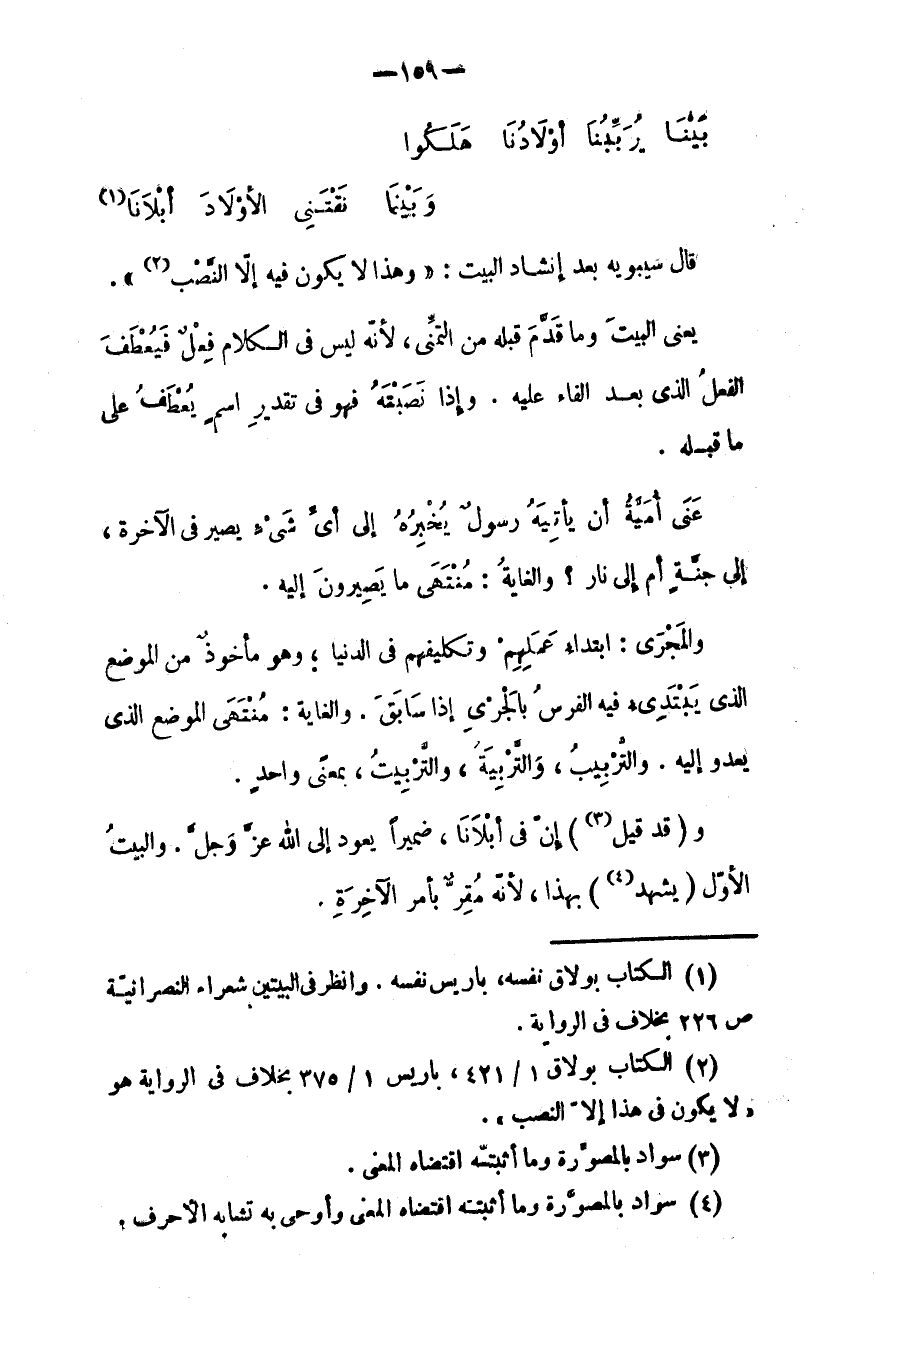 —١٥٩—
بَيْنَا يُرَبِّبُنَا أوْلَادُنَا هَلَكُوا
وَبَيْنَمَا نَقْتَنِى الأوْلَادَ أبْلَانَا(١)
قال سيبويه بعد إنشاد البيت : « وهذا لا يكون فيه إلّا النَّصْب(٢) » .
يعنى البيتَ وما قَدَّمَ قبله من التمنِّى ، لأنّه ليس فى الكلام فِعْلٌ فَيُعْطَفَ
الفعلُ الذى بعد الفاء عليه . وإذا نَصَبْتَهُ فهو فى تقديرِ اسمٍ يُعْطَفُ على
ما قبله .
عَنَى أُمَيَّةُ أن يأتِيَهُ رسولٌ يُخْبِرُهُ إلى أىِّ شَىْءٍ يصير فى الآخرة ،
إلى جنَّةٍ أم إلى نار ؟ والغايةُ : مُنْتَهَى ما يَصِيرونَ إليه .
والمَجْرَى : ابتداء عَمَلِهِمْ وتكليفهم فى الدنيا ؛ وهو مأخوذٌ من الموضع
الذى يَبْتَدِىء فيه الفرسُ بالجَرْىِ إذا سَابَقَ . والغاية : مُنْتَهَى الموضع الذى
يعدو إليه . والتَّرْبِيبُ ، وَالتَّرْبِيَةُ ، والتَّرْبِيتُ ، بمعنًى واحدٍ .
و ( قد قيل(٣) ) إنّ فى أبْلَانَا ، ضميراً يعود إلى الله عزَّ وَجلَّ . والبيتُ
الأوّل ( يشهد(٤) ) بهذا ، لأنّه مُقِرٌّ بأمر الآخِرَةِ .
(١) الكتاب بولاق نفسه، باريس نفسه . وانظر فى البيتين شعراء النصرانيّة
ص ٢٢٦ بخلاف فى الرواية .
(٢) الكتاب بولاق ١ / ٤٢١ ، باريس ١ / ٣٧٥ بخلاف فى الرواية هو
« لا يكون فى هذا إلاّ النصب » .
(٣) سواد بالمصوَّرة وما أثبتّه اقتضاه المعنى .
(٤) سواد بالمصوَّرة وما أثبتـه اقتضاه المعنى وأوحى به تشابه الأحرف .